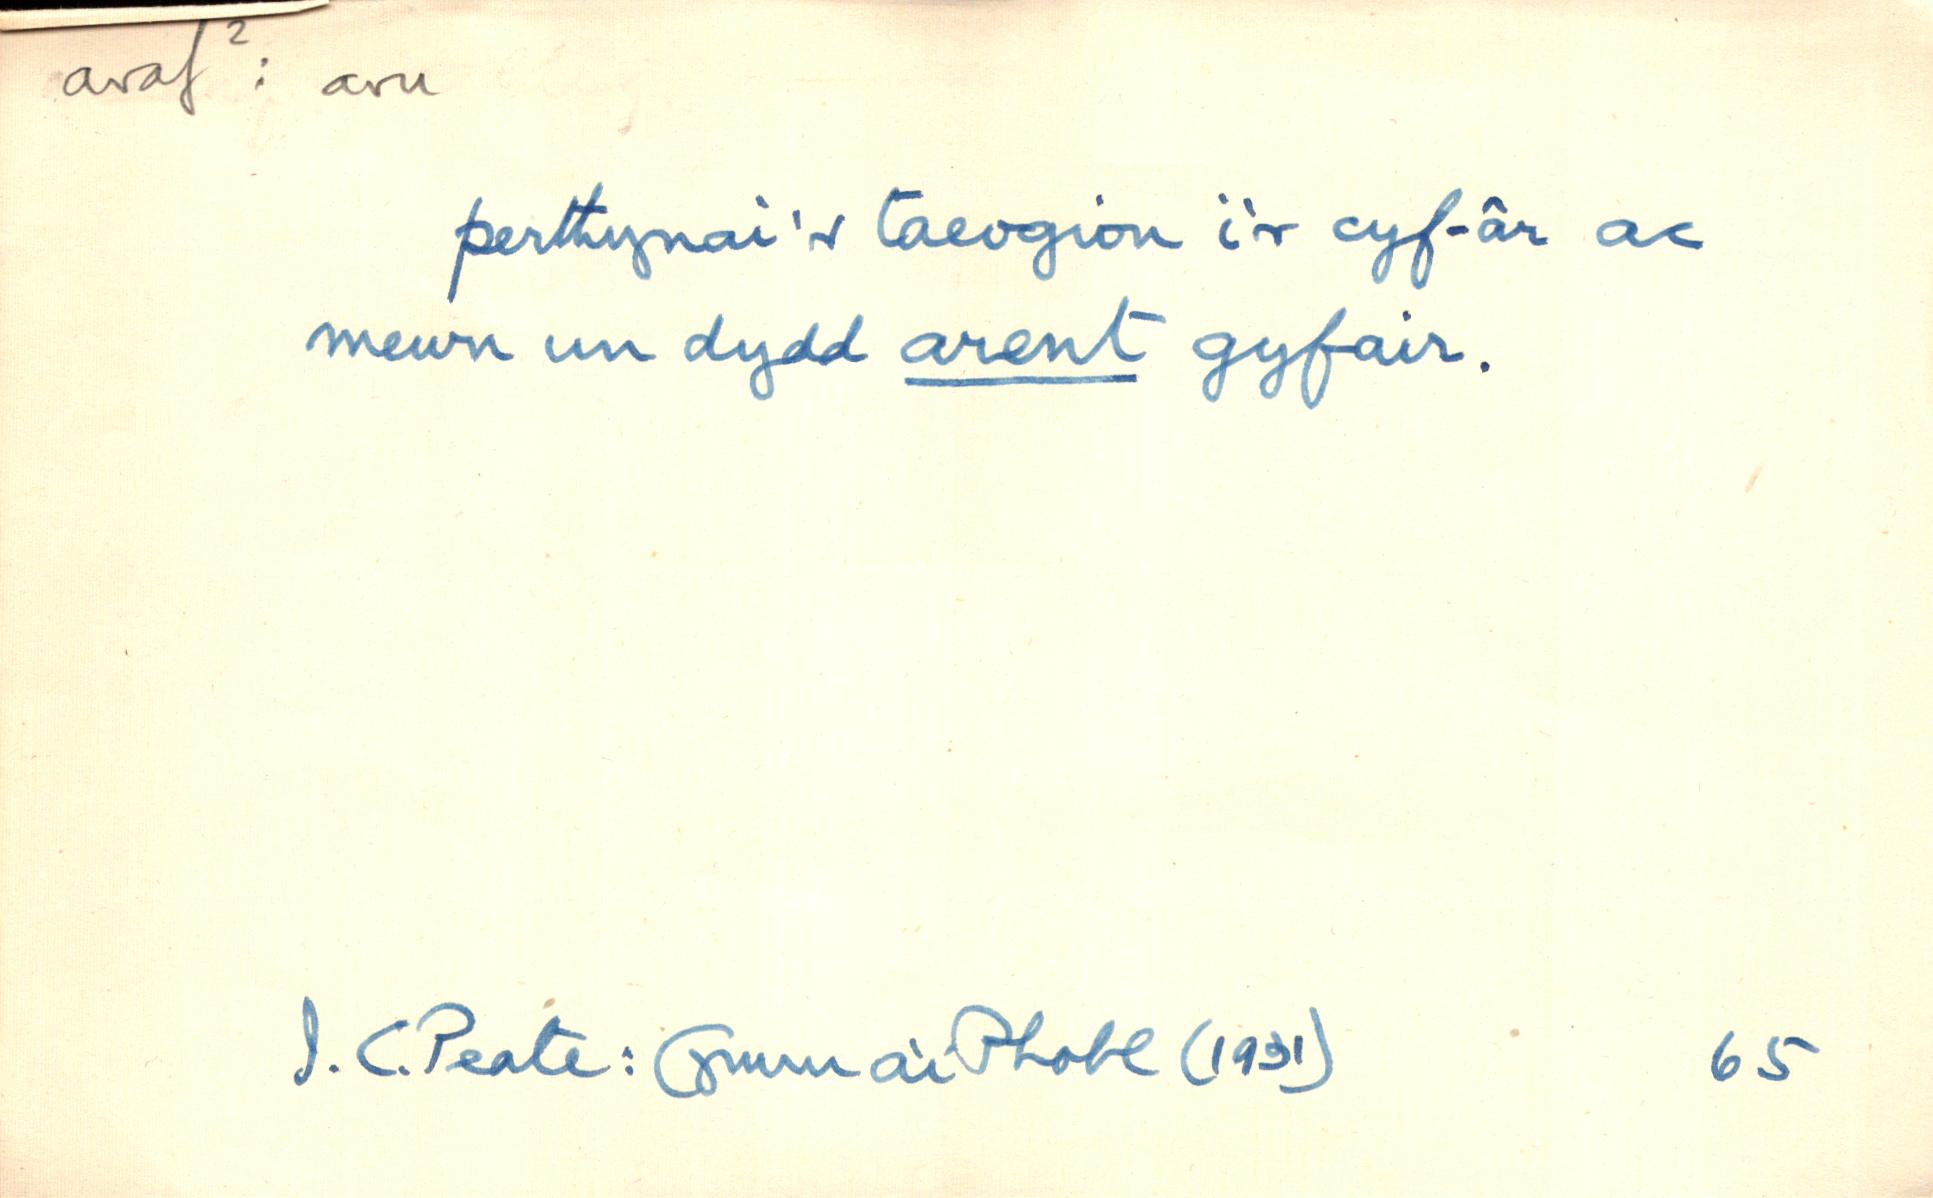 araf²: aru
perthynai'r taeogion i'r cyf-âr ac
mewn un dydd arent gyfair.
I. C. Peate: Cymru a'i Phobl (1931) 65